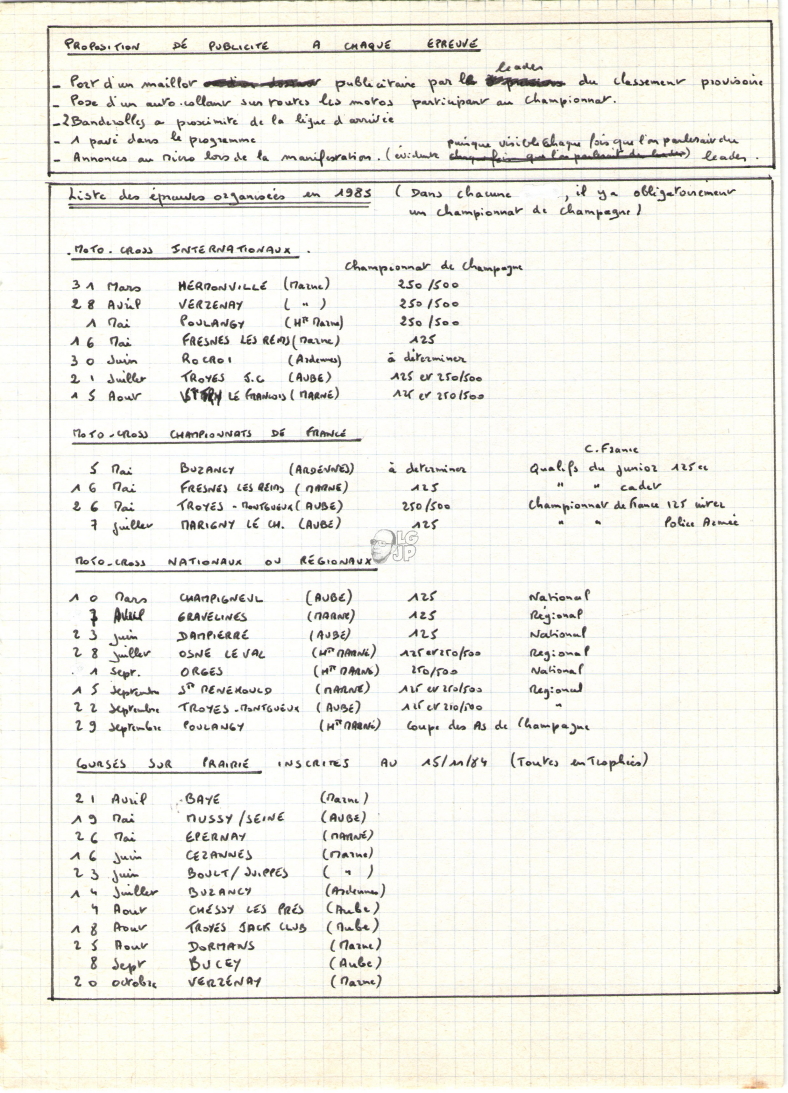 PROPOSITION DE PUBLICITE A CHAQUE EPREUVE
leader
- Port d'un maillot publicitaire par le du classement provisoire
- Pose d'un auto.collant sur toutes les motos participant au championnat.
- 2 Banderolles a proximite de la ligne d'arrivée
- 1 pavé dans le programme
puisque visible chaque fois que l'on parlerait du
- Annonces au micro lors de la manifestation. (évidente chaque fois que l'on parlerait du leader) leader.
Liste des épreuves organisées en 1985 (Dans chacune , il y a obligatoirement
un championnat de champagne)
. MOTO. CROSS INTERNATIONAUX .
Championnat de Champagne
31 Mars HERMONVILLE (Marne) 250/500
28 Avril VERZENAY ( " ) 250/500
1 Mai POULANGY (Hte Marne) 250/500
16 Mai FRESNES LES REIMS (Marne) 125
30 Juin ROCROI (Ardennes) à déterminer
21 Juillet TROYES J.C (AUBE) 125 et 250/500
15 Aout VITRY LE FRANCOIS (MARNE) 125 et 250/500
MOTO-CROSS CHAMPIONNATS DE FRANCE
C. France
5 Mai BUZANCY (ARDENNES) à determiner Qualifs du junior 125cc
16 Mai FRESNES LES REIMS (MARNE) 125 " " cadet
26 Mai TROYES - MONTGUEUX (AUBE) 250/500 Championnat de France 125 inter
7 juillet MARIGNY LE CH. (AUBE) 125 " " Police Armée
LG
JP
MOTO-CROSS NATIONAUX OU RÉGIONAUX
10 Mars CHAMPIGNEUL (AUBE) 125 National
7 Avril GRAVELINES (MARNE) 125 Régional
23 juin DAMPIERRE (AUBE) 125 National
28 juillet OSNE LE VAL (Hte MARNE) 125 et 250/500 Regional
1 Sept. ORGES (Hte MARNE) 250/500 National
15 Septembre Ste MENEHOULD (MARNE) 125 et 250/500 Regional
22 Septembre TROYES - MONTGUEUX (AUBE) 125 et 250/500 "
29 Septembre POULANGY (Hte MARNE) Coupe des As de Champagne
COURSES SUR PRAIRIE INSCRITES AU 15/11/84 (Toutes en Trophées)
21 Avril BAYE (Marne)
19 Mai MUSSY/SEINE (AUBE)
26 Mai EPERNAY (MARNE)
16 Juin CEZANNES (Marne)
23 Juin BOULT/SUIPPES ( " )
14 Juillet BUZANCY (Ardennes)
4 Aout CHESSY LES PRÉS (Aube)
18 Aout TROYES JACK CLUB (Aube)
25 Aout DORMANS (Marne)
8 Sept BUCEY (Aube)
20 octobre VERZÉNAY (Marne)